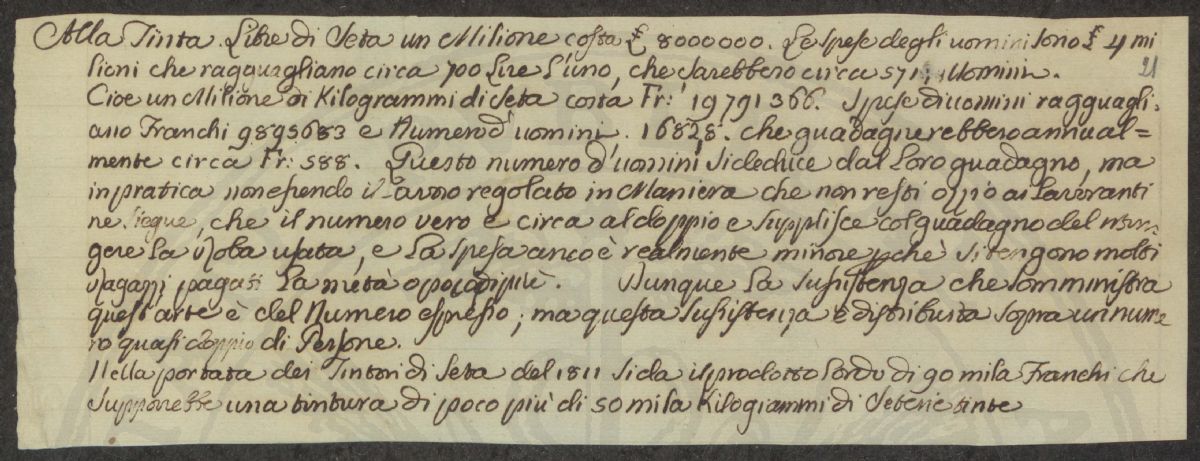 Alla Tinta. Libre di Seta un Milione costa £ 8000000. Le spese degli uomini sono £ 4 mi
lioni che ragguagliano circa 700 Lire l'uno, che sarebbero circa 571 Uomini.
21
Cioe un Milione di Kilogrammi di Seta costa Fr: 19791366. Spese di uomini ragguagli=
ano Franchi 9895683 e Numero d'uomini. 16828. che guadagnerebbero annual=
mente circa Fr: 588. Questo numero d'uomini si deduce dal loro guadagno, ma
in pratica non essendo il Lavoro regolato in Maniera che non resti ozzio ai Lavoranti
ne segue, che il numero vero è circa al doppio e supplisce col guadagno del
gere la Roba usata, e la spesa anco è realmente minore pchè si tengono molti
Ragazzi pagati la metà o poco di più. Dunque la sussistenza che somministra
quest'arte è del Numero espresso; ma questa sussistenza è distribuita sopra un nume
ro quasi doppio di Persone.
Nella portata dei Tintori di Seta del 1811 si da il prodotto Lordo di 90 mila Franchi che
supporrebbe una tintura di poco più di 50 mila Kilogrammi di Seterie tinte